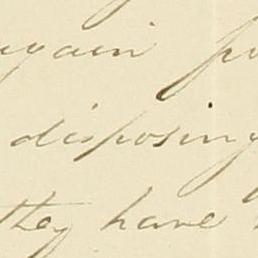 again
disposing
they have